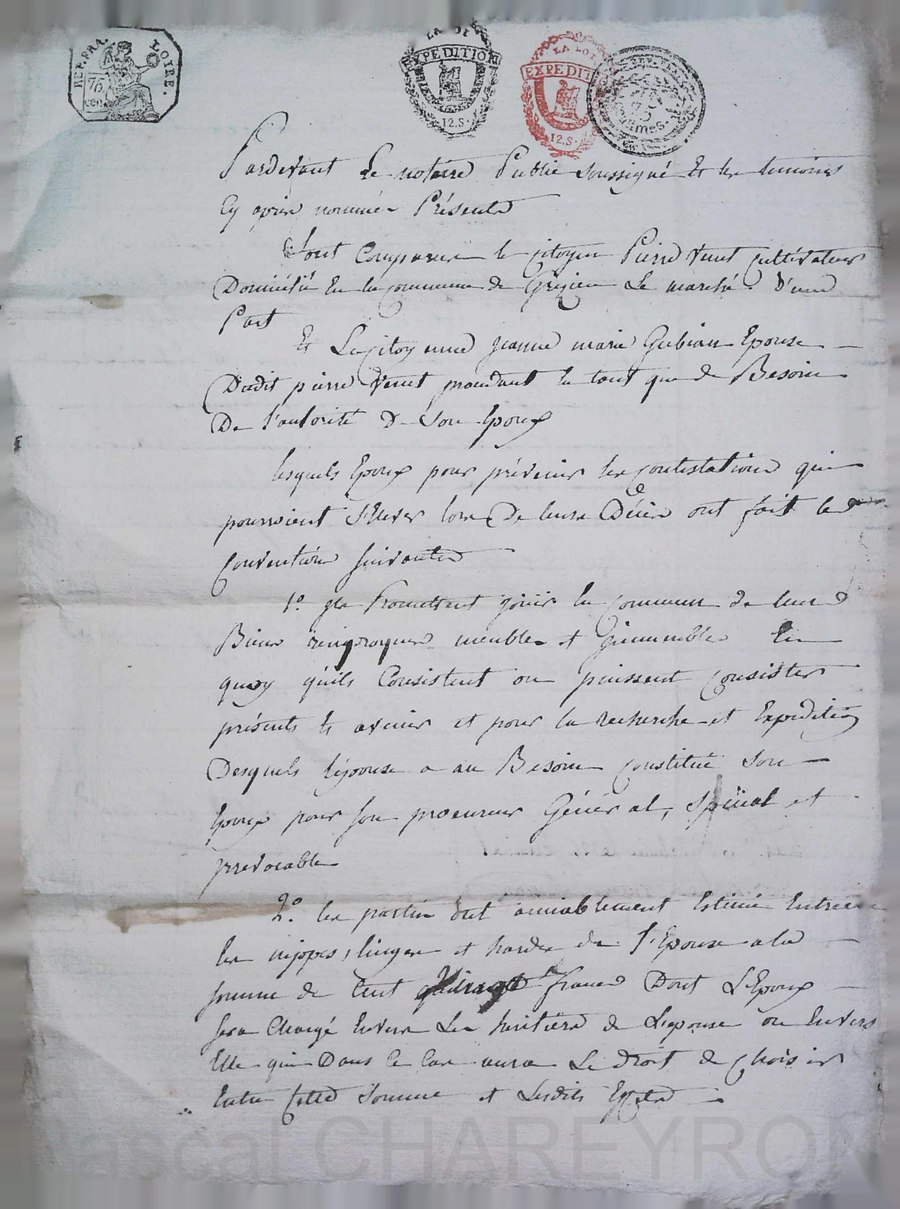 REP. FRA. LOIRE.
75 cen
LA LOI
EXPEDITION
12.S.
LA LOI
EXPEDITI
12.S.
Pardevant Le notaire Public soussigné Et les temoins
Cy après nommés Présents
sont Comparus le citoyen Pierre cultivateur
Domicilié En la commune de Grezieu Le marché D'une
Part
Et La Citoyenne jeanne marie Gubian Epouse
Dudit pierre procédant En tout que de Besoin
De l'autorité de Son Epoux
lesquels Epoux pour prévenir les contestations qui
pourroient S'Elever lors De leurs Décès ont fait les
Conventions suivantes
1º. jls Promettent joüir En commun de leurs
Biens réciproques meubles et jmmeubles En
quoy quils Consistent ou puissent Consister
présents Et avenir et pour la recherche et Expedition
Desquels l'épouse a au Besoin Constitué Son
Epoux pour son procureur Général, Spécial et
jrrevocable
2º. les parties ont amiablement Estimé Entreelles
les nippes, linges et hardes de l'Epouse a la
somme de Cent francs Dont L'Epoux
sera Chargé Envers Les héritiers de L'epouse ou Envers
Elle qui Dans ce Cas aura Le droit de choisir
Entre Cette Somme et Lesdits Effets
Pascal CHAREYRON